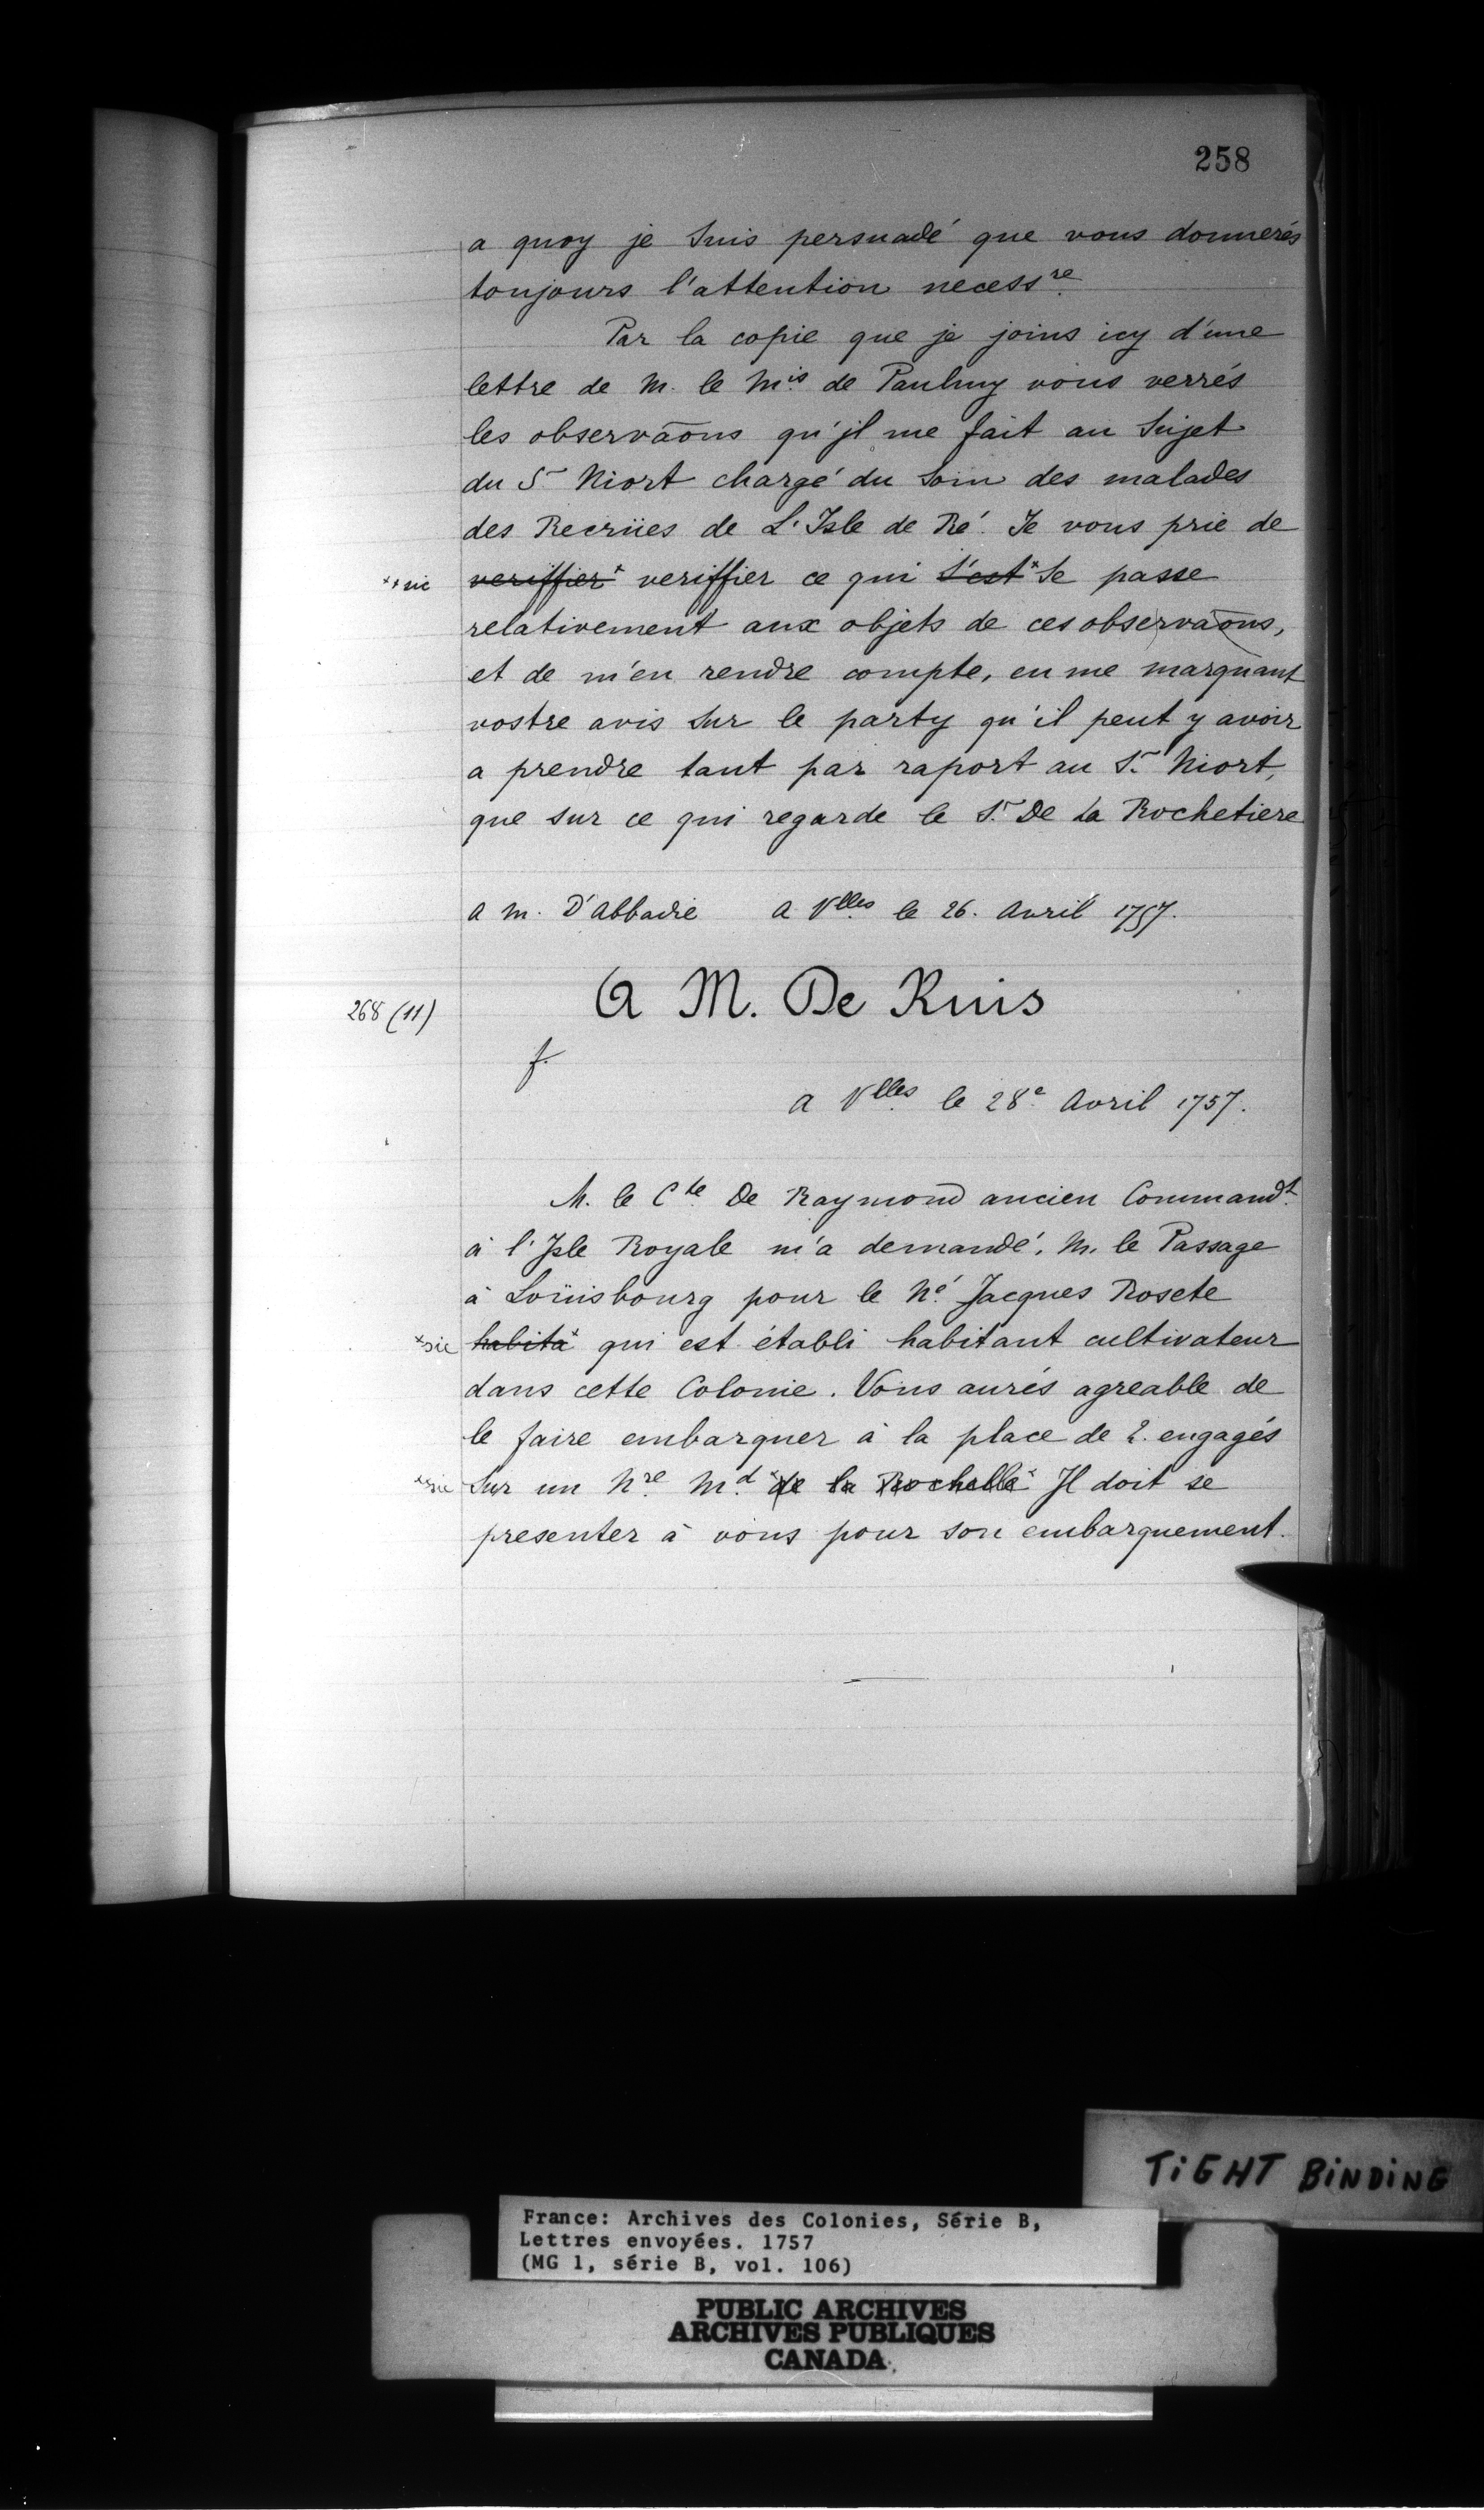 258
a quoy je suis persuadé que vous donnerés
toujours l'attention necess.re
Par la copie que je joins icy d'une
lettre de M. le M.is de Paulmy vous verrés
les observãons qu'jl me fait au sujet
du Sr Niort chargé du soin des malades
des Recrües de L'Isle de Ré. Je vous prie de
x+ sic veriffier x veriffier ce qui s'est x se passe
relativement aux objets de ces observãons,
et de m'en rendre compte, en me marquant
vostre avis sur le party qu'il peut y avoir
a prendre tant par raport au S.r Niort,
que sur ce qui regarde le S.r De La Rochetiere
a M. D'Abbadie a V.lles le 26. Avril 1757.
268 (11) A M. De Ruis
f.
a V.lles le 28.e Avril 1757.
M. le C.te De Raymond ancien Command.t
à l'Jsle Royale m'a demandé, M. le Passage
à Loüisbourg pour le N.é Jacques Rosete
x sic habita x qui est établi habitant cultivateur
dans cette Colonie. Vous aurés agreable de
le faire embarquer à la place de 2. engagés
x sic sur un N.re M.d x de la Rochelle x Jl doit se
presenter à vous pour son embarquement.
TIGHT BINDING
France: Archives des Colonies, Série B,
Lettres envoyées. 1757
(MG 1, série B, vol. 106)
PUBLIC ARCHIVES
ARCHIVES PUBLIQUES
CANADA